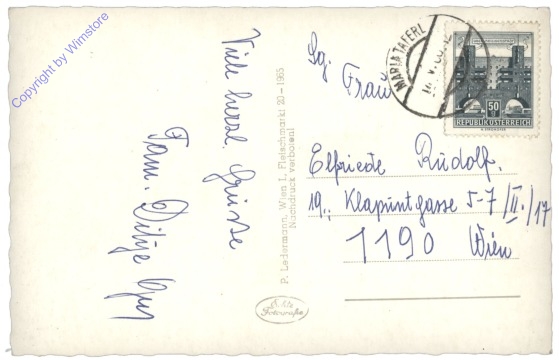 Copyright by Wimstore
Viele herzl. Grüsse
Fam.
P. Ledermann, Wien I, Fleischmarkt 20 - 1965
Nachdruck verboten!
Echte
Fotografie
MARIA TAFERL
50
REPUBLIK ÖSTERREICH
Sg.
Frau
Elfriede Rudolf.
19., Klapuntgasse 5-7/II./17
1190 Wien